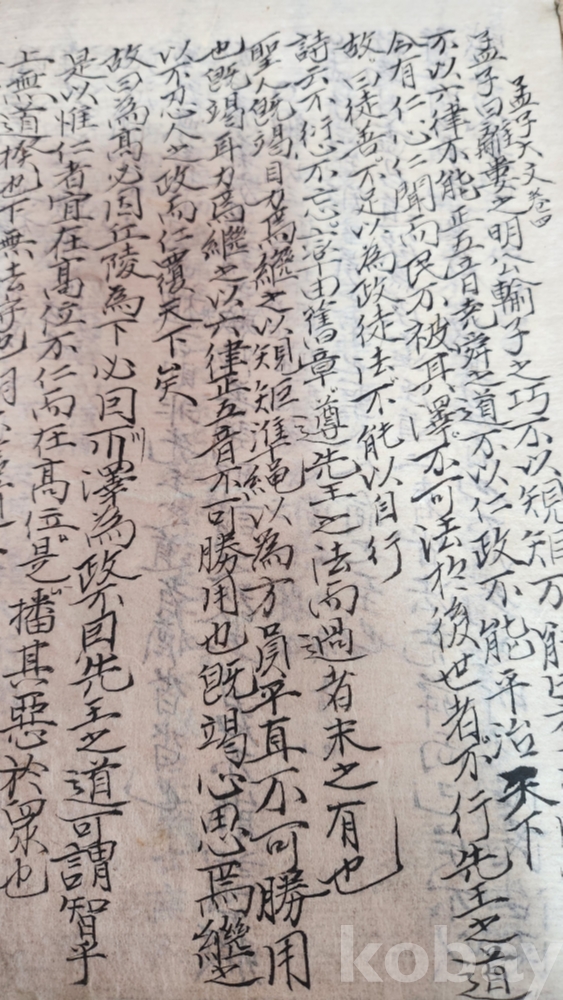 孟子大文 卷四
孟子曰離婁之明公輸子之巧不以規矩不能
不以六律不能正五音堯舜之道不以仁政不能平治天下
今有仁心仁聞而民不被其澤不可法於後世者不行先王之道
故曰徒善不足以為政徒法不能以自行
詩云不愆不忘率由舊章遵先王之法而過者未之有也
聖人既竭目力焉繼之以規矩準繩以為方員平直不可勝用
也既竭耳力焉繼之以六律正五音不可勝用也既竭心思焉繼之
以不忍人之政而仁覆天下矣
故曰為高必因丘陵為下必因川澤為政不因先王之道可謂智乎
是以惟仁者宜在高位不仁而在高位是播其惡於眾也
上無道揆也下無法守也朝
kobay